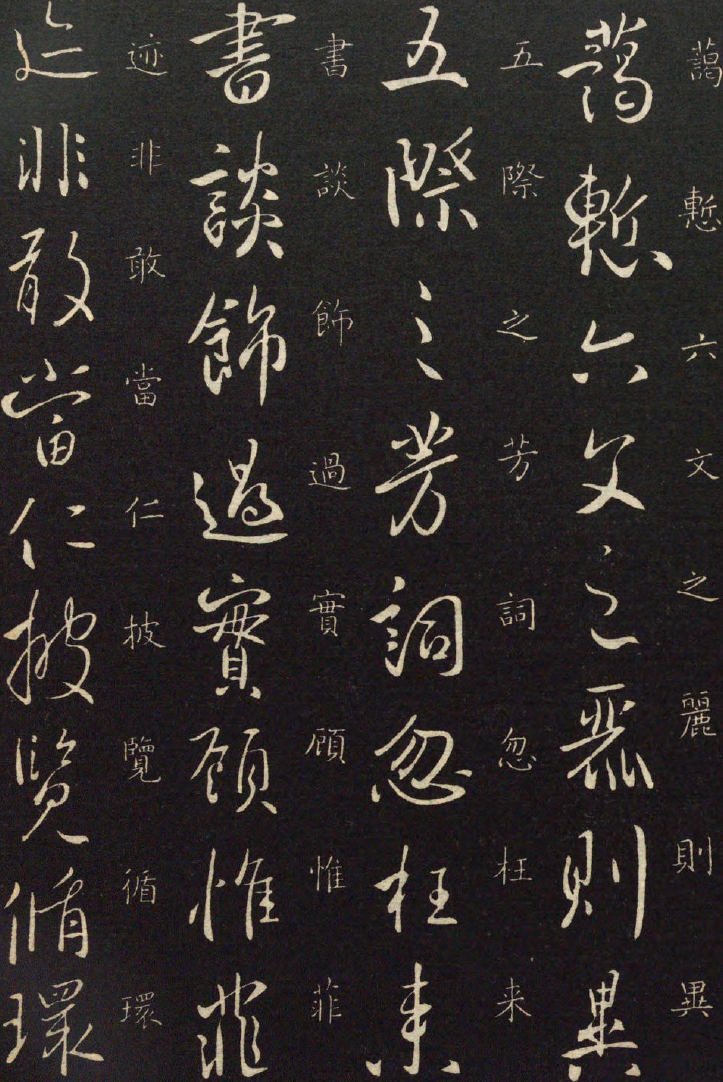 藹慙六文之麗則異
藹慙六文之麗則異
五際之芳詞忽枉来
五際之芳詞忽枉来
書談飾過實顧惟菲
書談飾過實顧惟菲
迹非敢當仁披覽循環
迹非敢當仁披覽循環